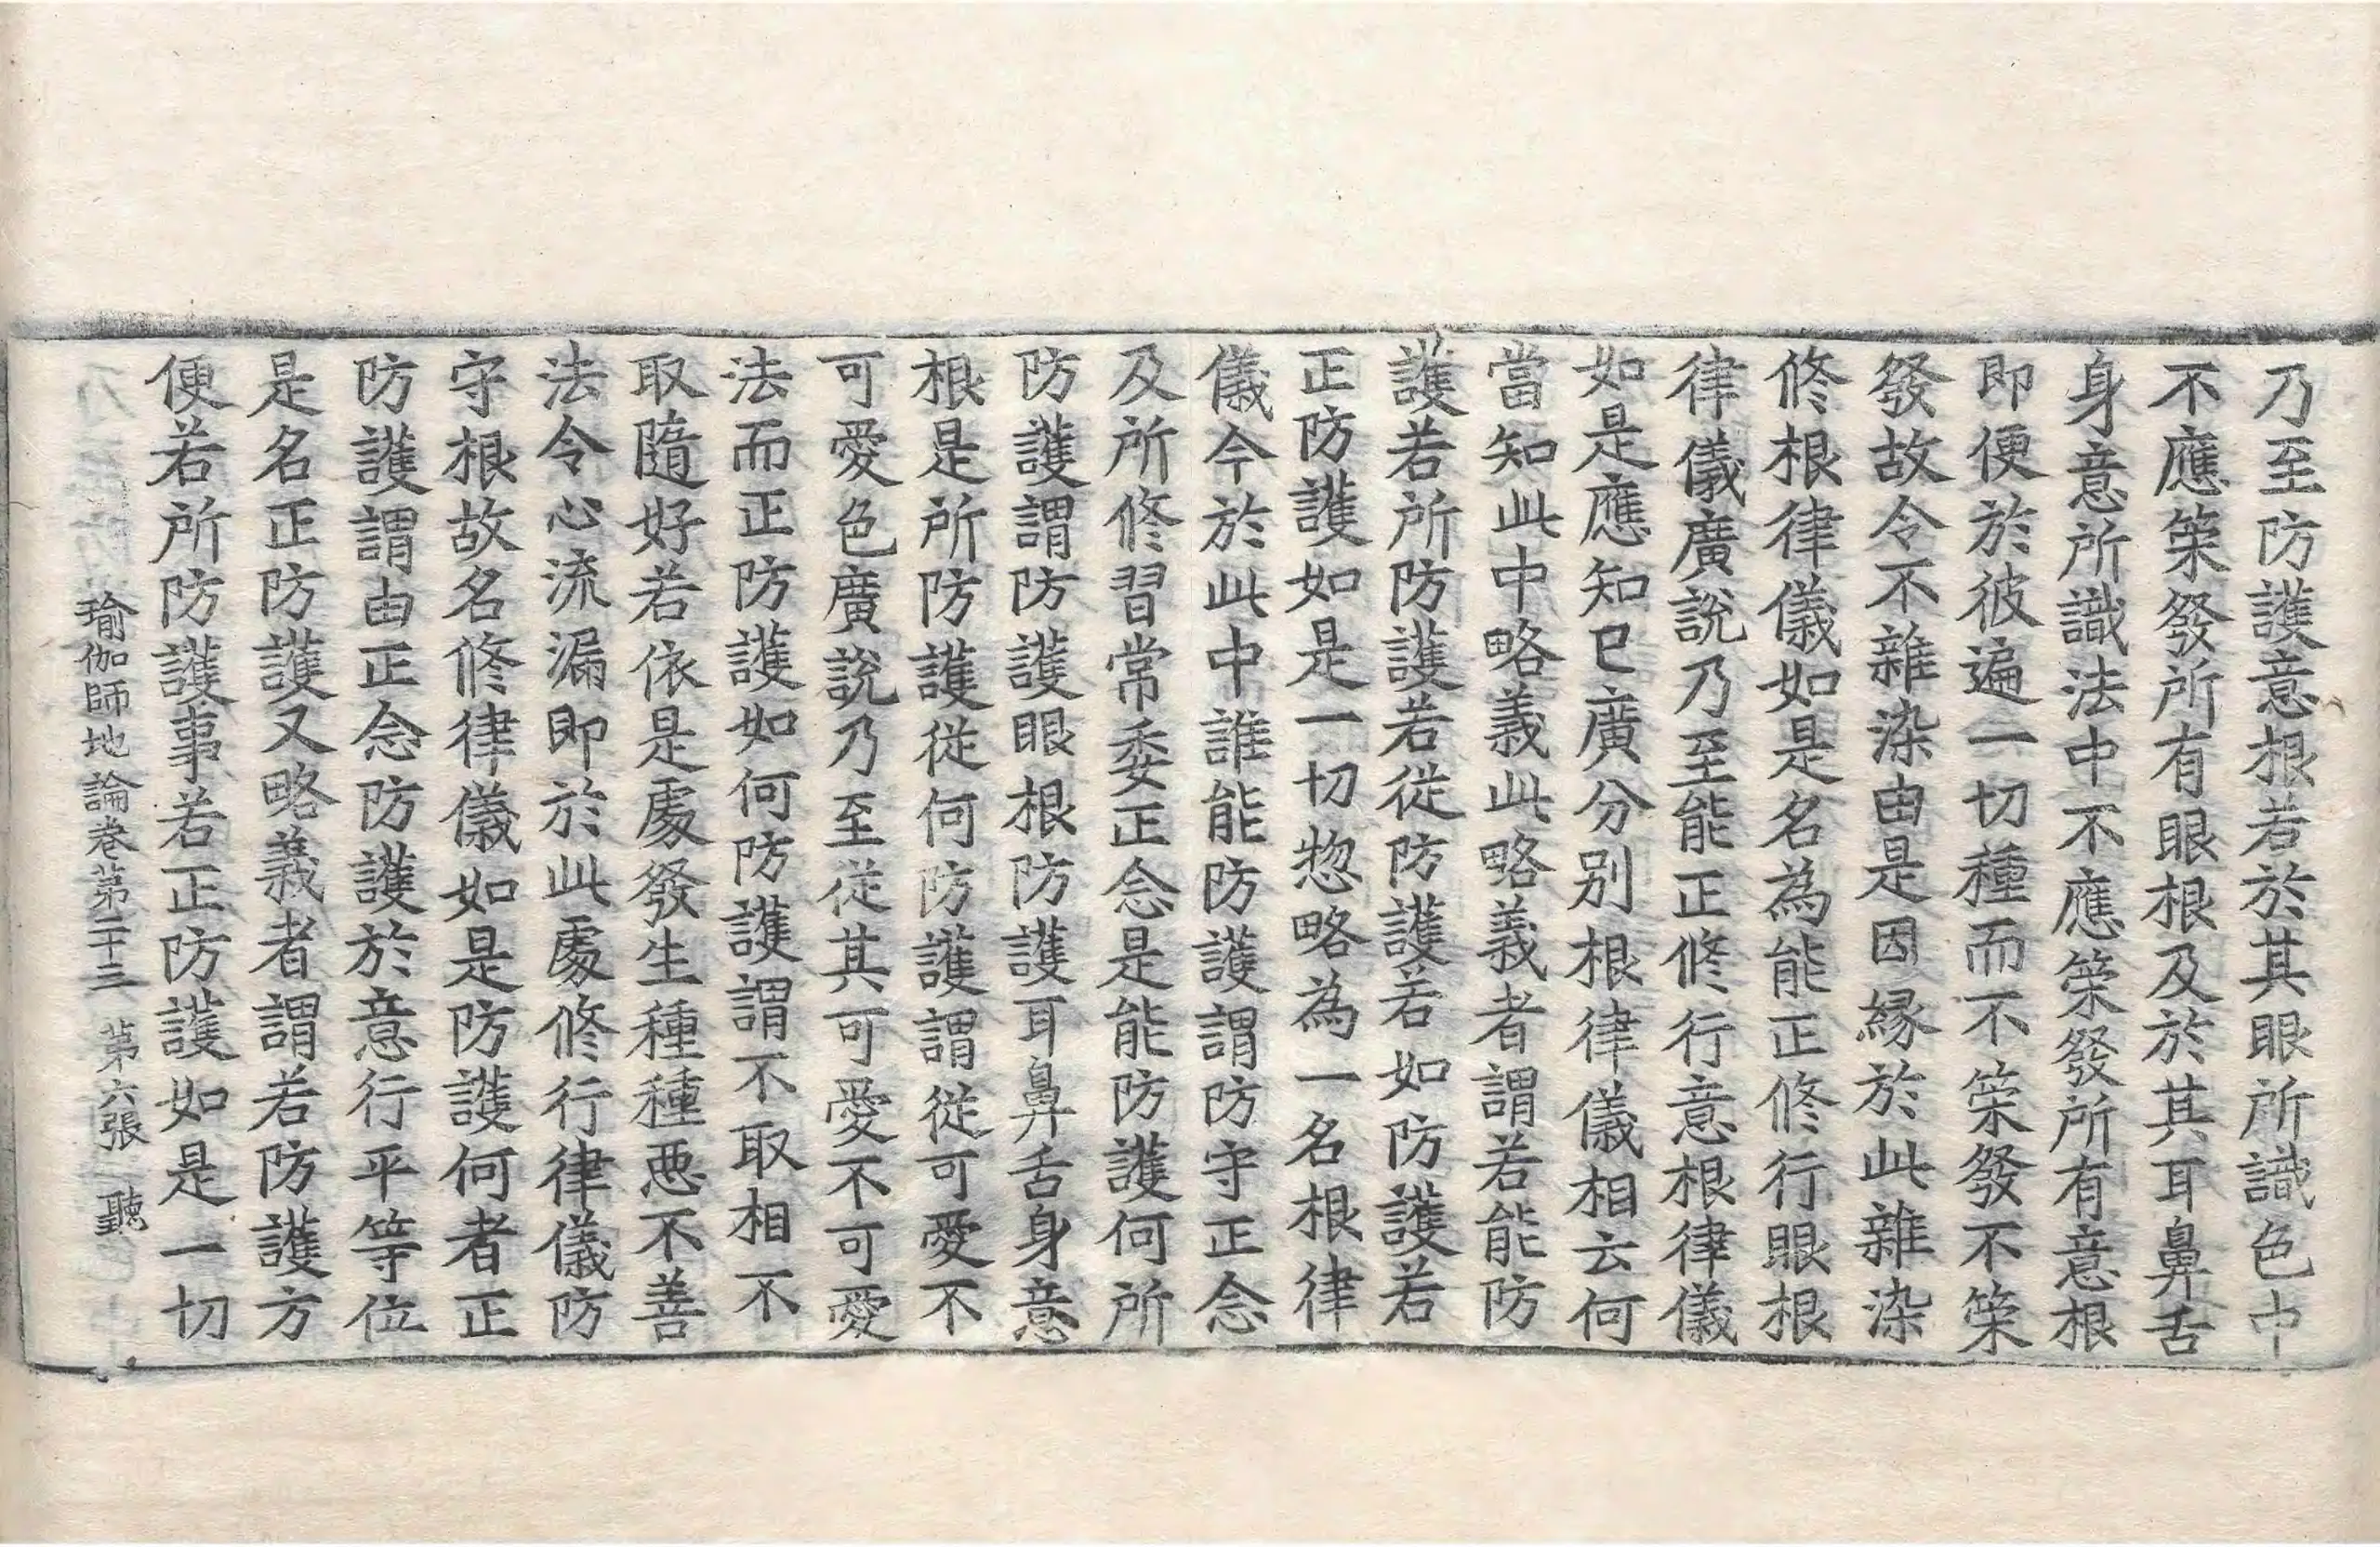 乃至防護意根若於其眼所識色中
不應策發所有眼根及於其耳鼻舌
身意所識法中不應策發所有意根
即便於彼遍一切種而不策發不策
發故令不雜染由是因緣於此雜染
修根律儀如是名為能正修行眼根
律儀廣說乃至能正修行意根律儀
如是應知已廣分別根律儀相云何
當知此中略義此略義者謂若能防
護若所防護若從防護若如防護若
正防護如是一切惣略為一名根律
儀今於此中誰能防護謂防守正念
及所修習常委正念是能防護何所
防護謂防護眼根防護耳鼻舌身意
根是所防護從何防護謂從可愛不
可愛色廣說乃至從其可愛不可愛
法而正防護如何防護謂不取相不
取隨好若依是處發生種種惡不善
法令心流漏即於此處修行律儀防
守根故名修律儀如是防護何者正
防護謂由正念防護於意行平等位
是名正防護又略義者謂若防護方
便若所防護事若正防護如是一切
瑜伽師地論卷第二十三　第六張　聽